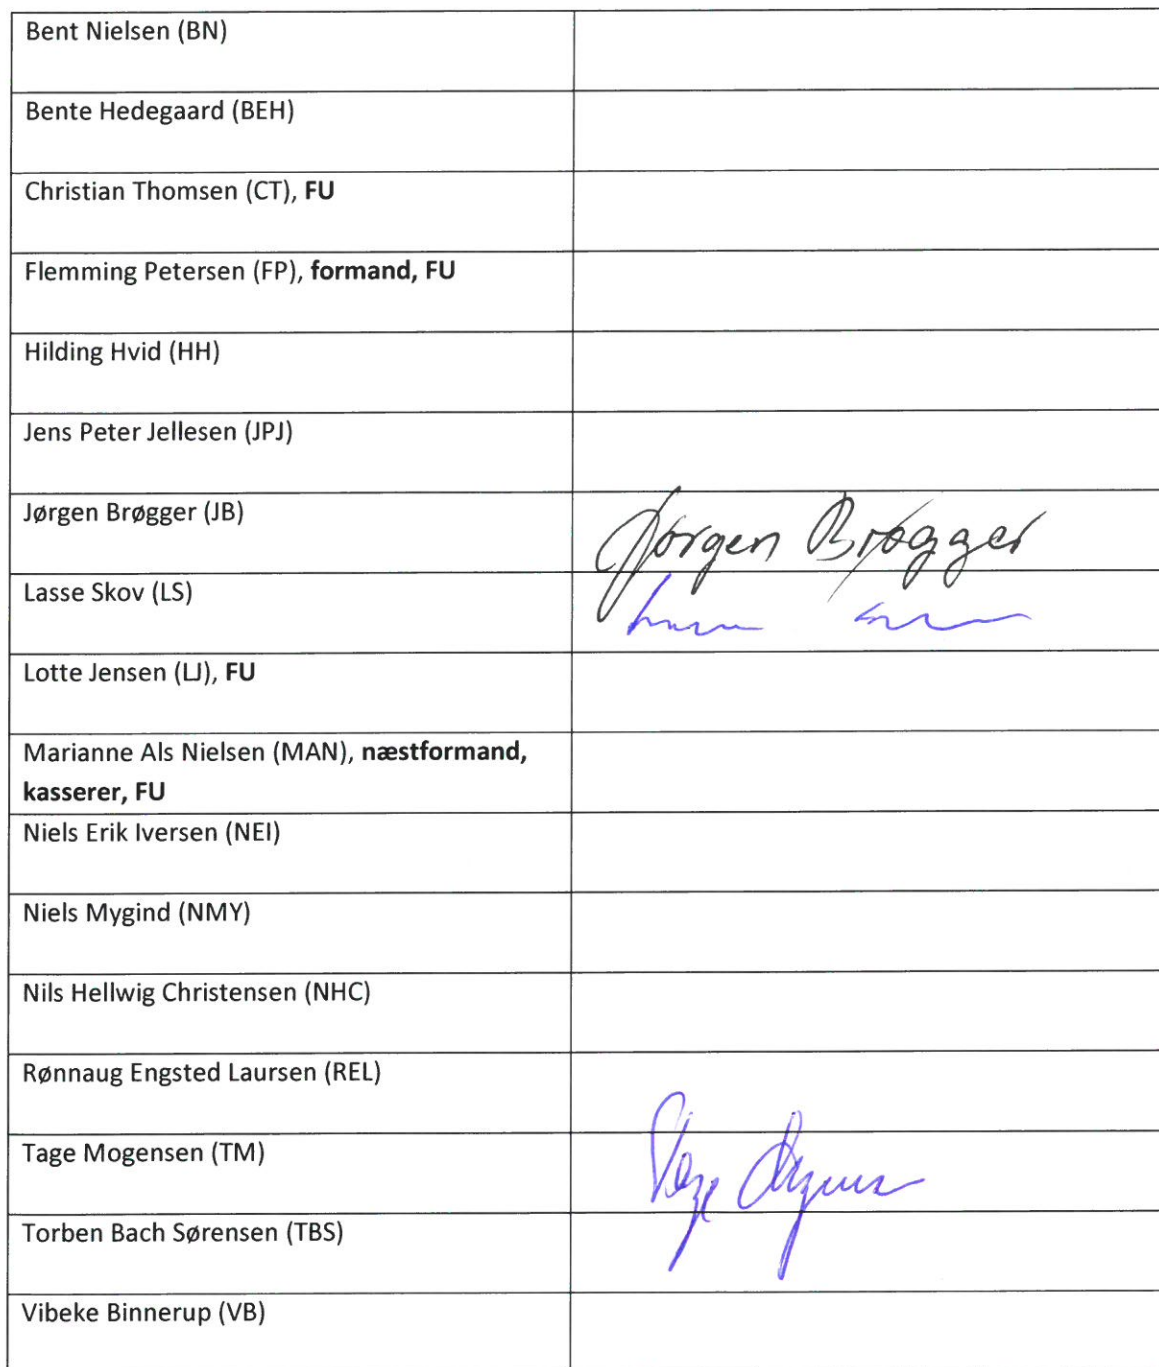 Bent Nielsen (BN)
Bente Hedegaard (BEH)
Christian Thomsen (CT), FU
Flemming Petersen (FP), formand, FU
Hilding Hvid (HH)
Jens Peter Jellesen (JPJ)
Jørgen Brøgger (JB)
Jørgen Brøgger
Lasse Skov (LS)
Lotte Jensen (LJ), FU
Marianne Als Nielsen (MAN), næstformand,
kasserer, FU
Niels Erik Iversen (NEI)
Niels Mygind (NMY)
Nils Hellwig Christensen (NHC)
Rønnaug Engsted Laursen (REL)
Tage Mogensen (TM)
Torben Bach Sørensen (TBS)
Vibeke Binnerup (VB)